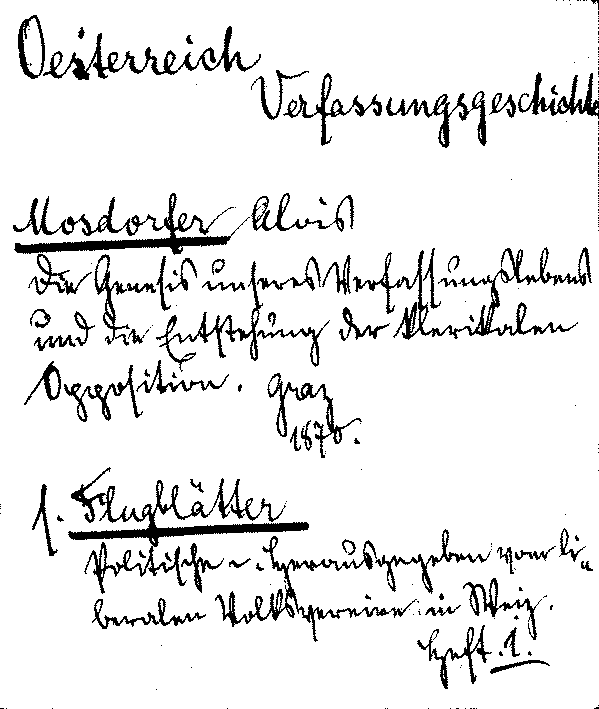 Oesterreich
Verfassungsgeschichte
Mosdorfer Alois
Die Genesis unseres Verfassungslebens
und die Entstehung der klerikalen
Opposition. Graz
1870.
s. Flugblätter
Politische –. Herausgegeben vom li-
beralen Volksvereine in Weiz.
Heft. 1.